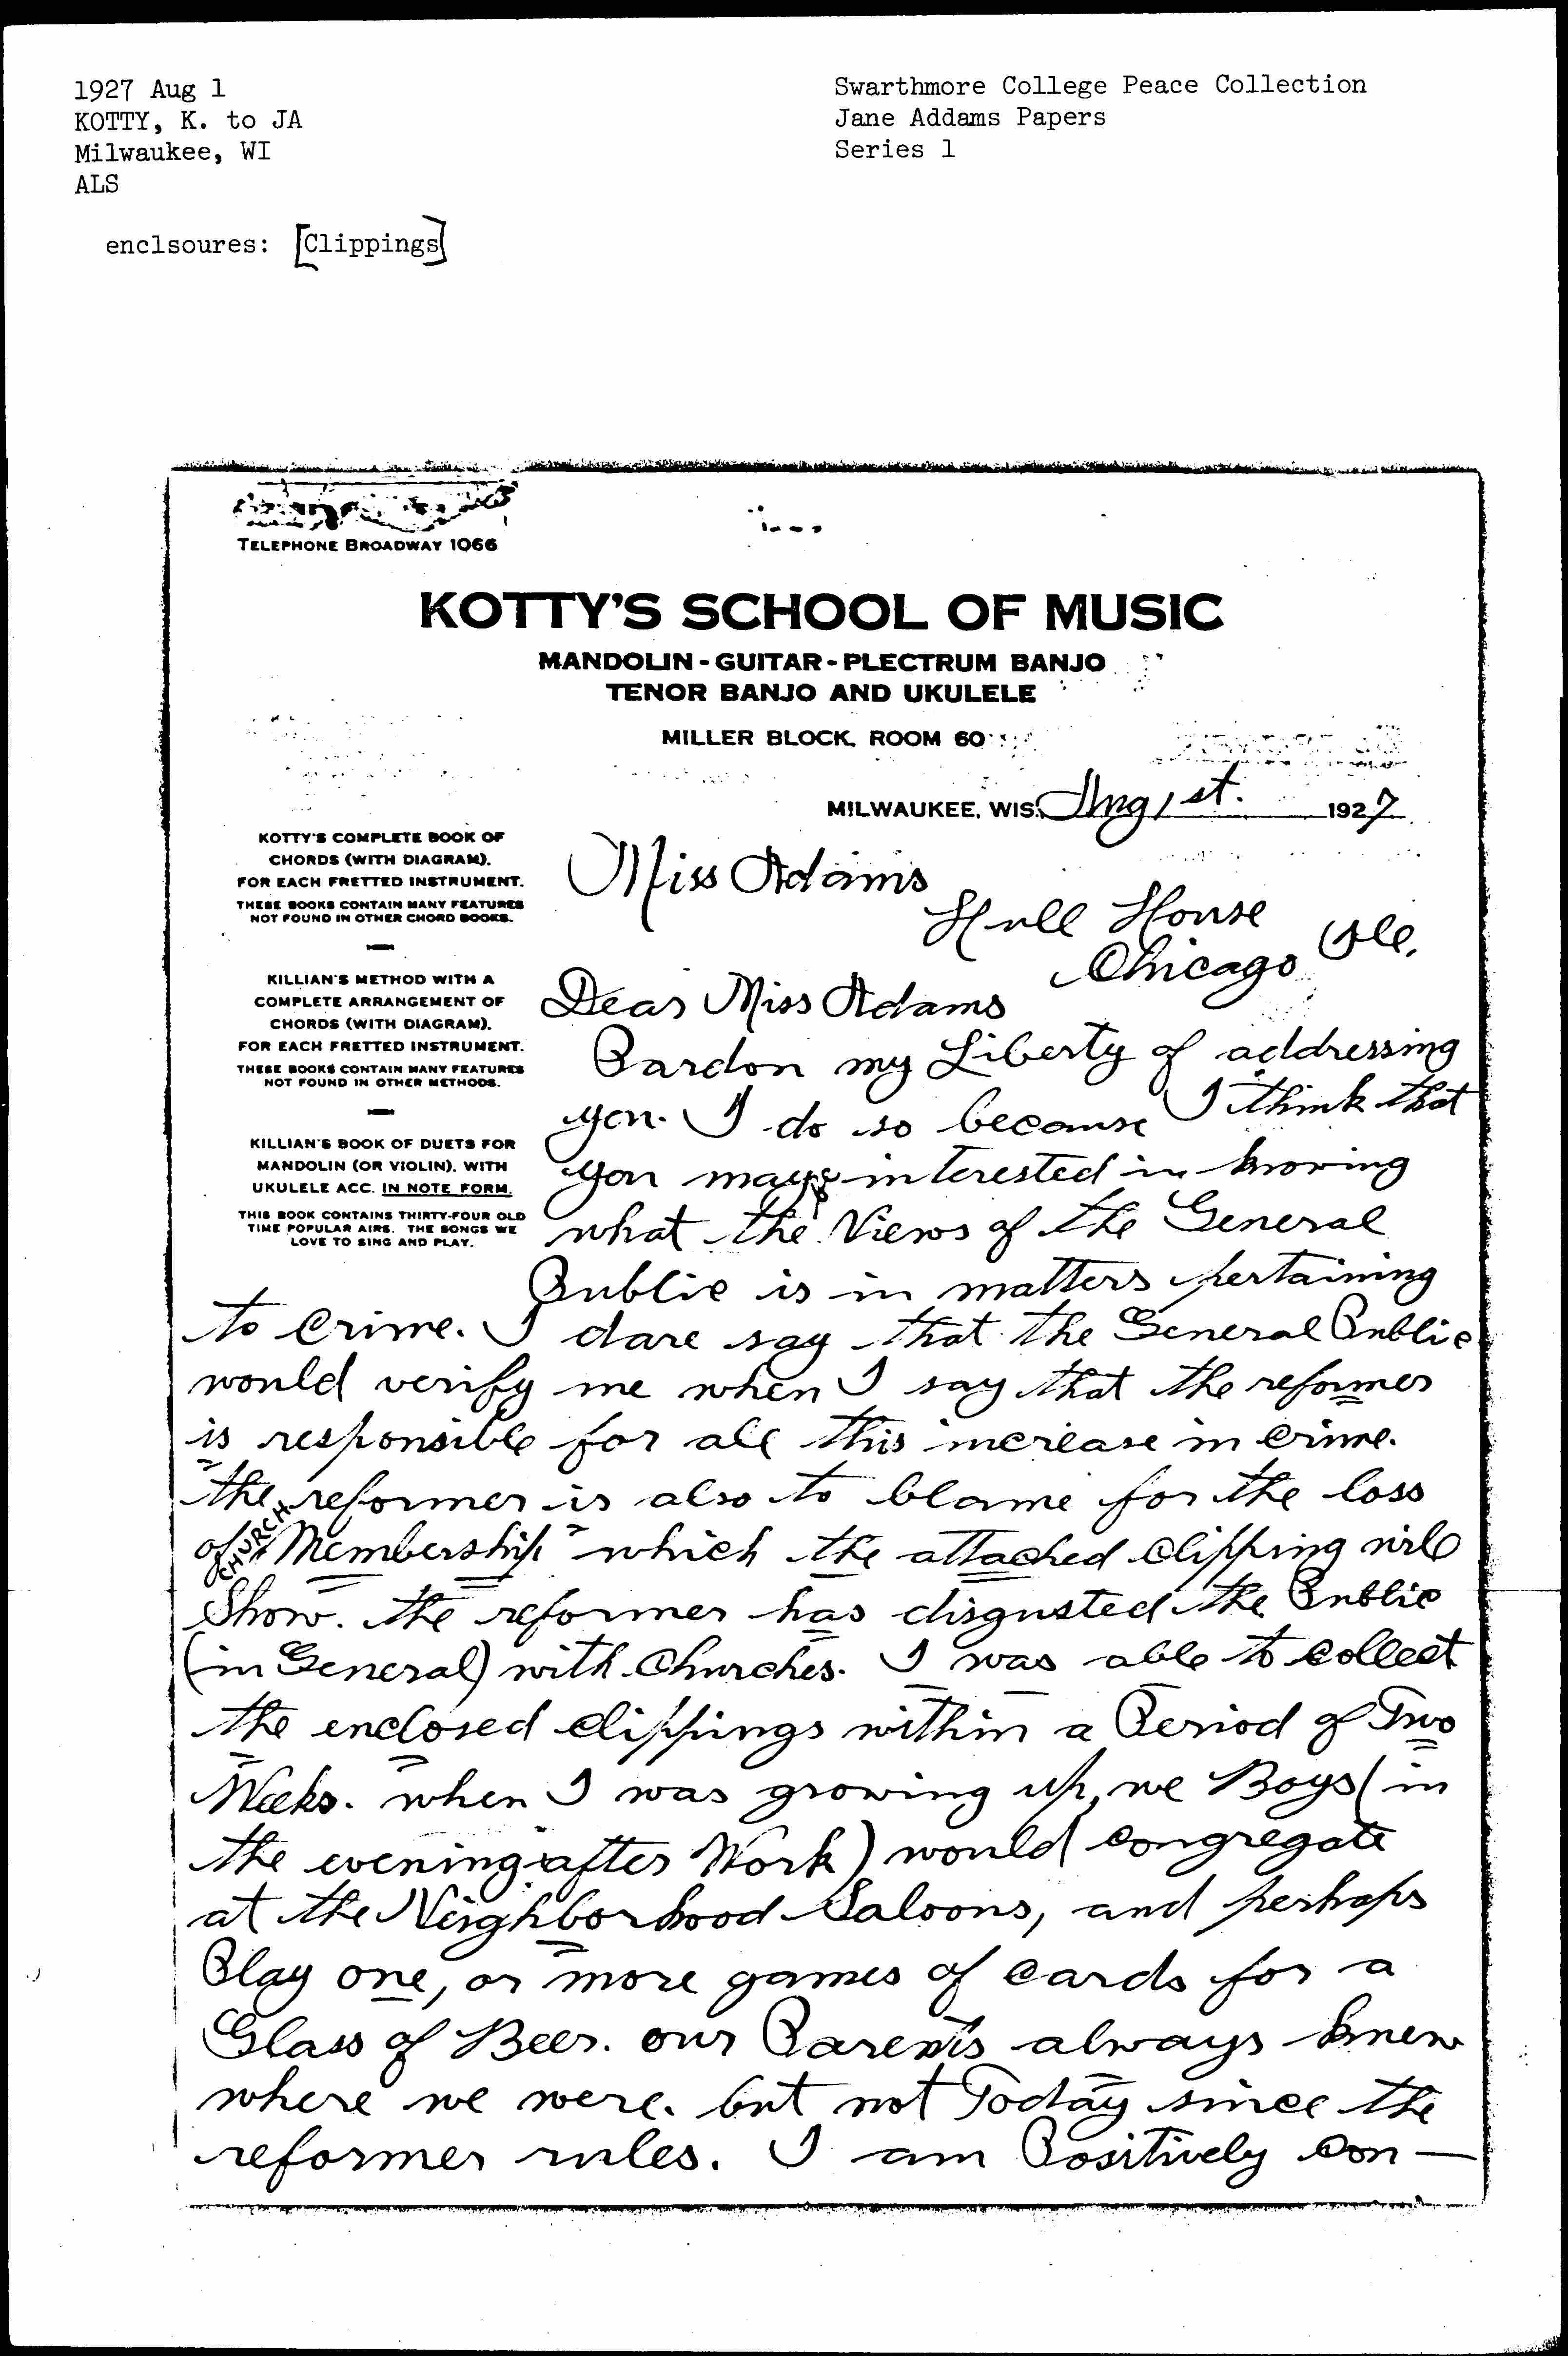 1927 Aug 1
KOTTY, K. to JA
Milwaukee, WI
ALS
enclsoures: [Clippings]
Swarthmore College Peace Collection
Jane Addams Papers
Series 1
TELEPHONE BROADWAY 1066
KOTTY'S SCHOOL OF MUSIC
MANDOLIN - GUITAR - PLECTRUM BANJO
TENOR BANJO AND UKULELE
MILLER BLOCK, ROOM 60
MILWAUKEE, WIS. Aug 1st. 1927
KOTTY'S COMPLETE BOOK OF
CHORDS (WITH DIAGRAM).
FOR EACH FRETTED INSTRUMENT.
THESE BOOKS CONTAIN MANY FEATURES
NOT FOUND IN OTHER CHORD BOOKS.
KILLIAN'S METHOD WITH A
COMPLETE ARRANGEMENT OF
CHORDS (WITH DIAGRAM).
FOR EACH FRETTED INSTRUMENT.
THESE BOOKS CONTAIN MANY FEATURES
NOT FOUND IN OTHER METHODS.
KILLIAN'S BOOK OF DUETS FOR
MANDOLIN (OR VIOLIN). WITH
UKULELE ACC. IN NOTE FORM.
THIS BOOK CONTAINS THIRTY-FOUR OLD
TIME POPULAR AIRS. THE SONGS WE
LOVE TO SING AND PLAY.
Miss Adams
Hull House
Chicago Ill.
Dear Miss Adams
Pardon my Liberty of addressing
you. I do so because I think that
you may be interested in knowing
what the Views of the General
Public is in matters pertaining
to Crime. I dare say that the General Public
would verify me when I say that the reformer
is responsible for all this increase in Crime.
the reformer is also to blame for the loss
of "CHURCH Membership" which the attached Clipping will
Show. the reformer has disgusted the Public
(in General) with Churches. I was able to collect
the enclosed clippings within a Period of Two
Weeks. when I was growing up, we Boys (in
the evening after Work) would congregate
at the Neighborhood Saloons, and perhaps
Play one, or more games of Cards for a
Glass of Beer. our Parents always knew
where we were. but not Today since the
reformer rules. I am Positively con-